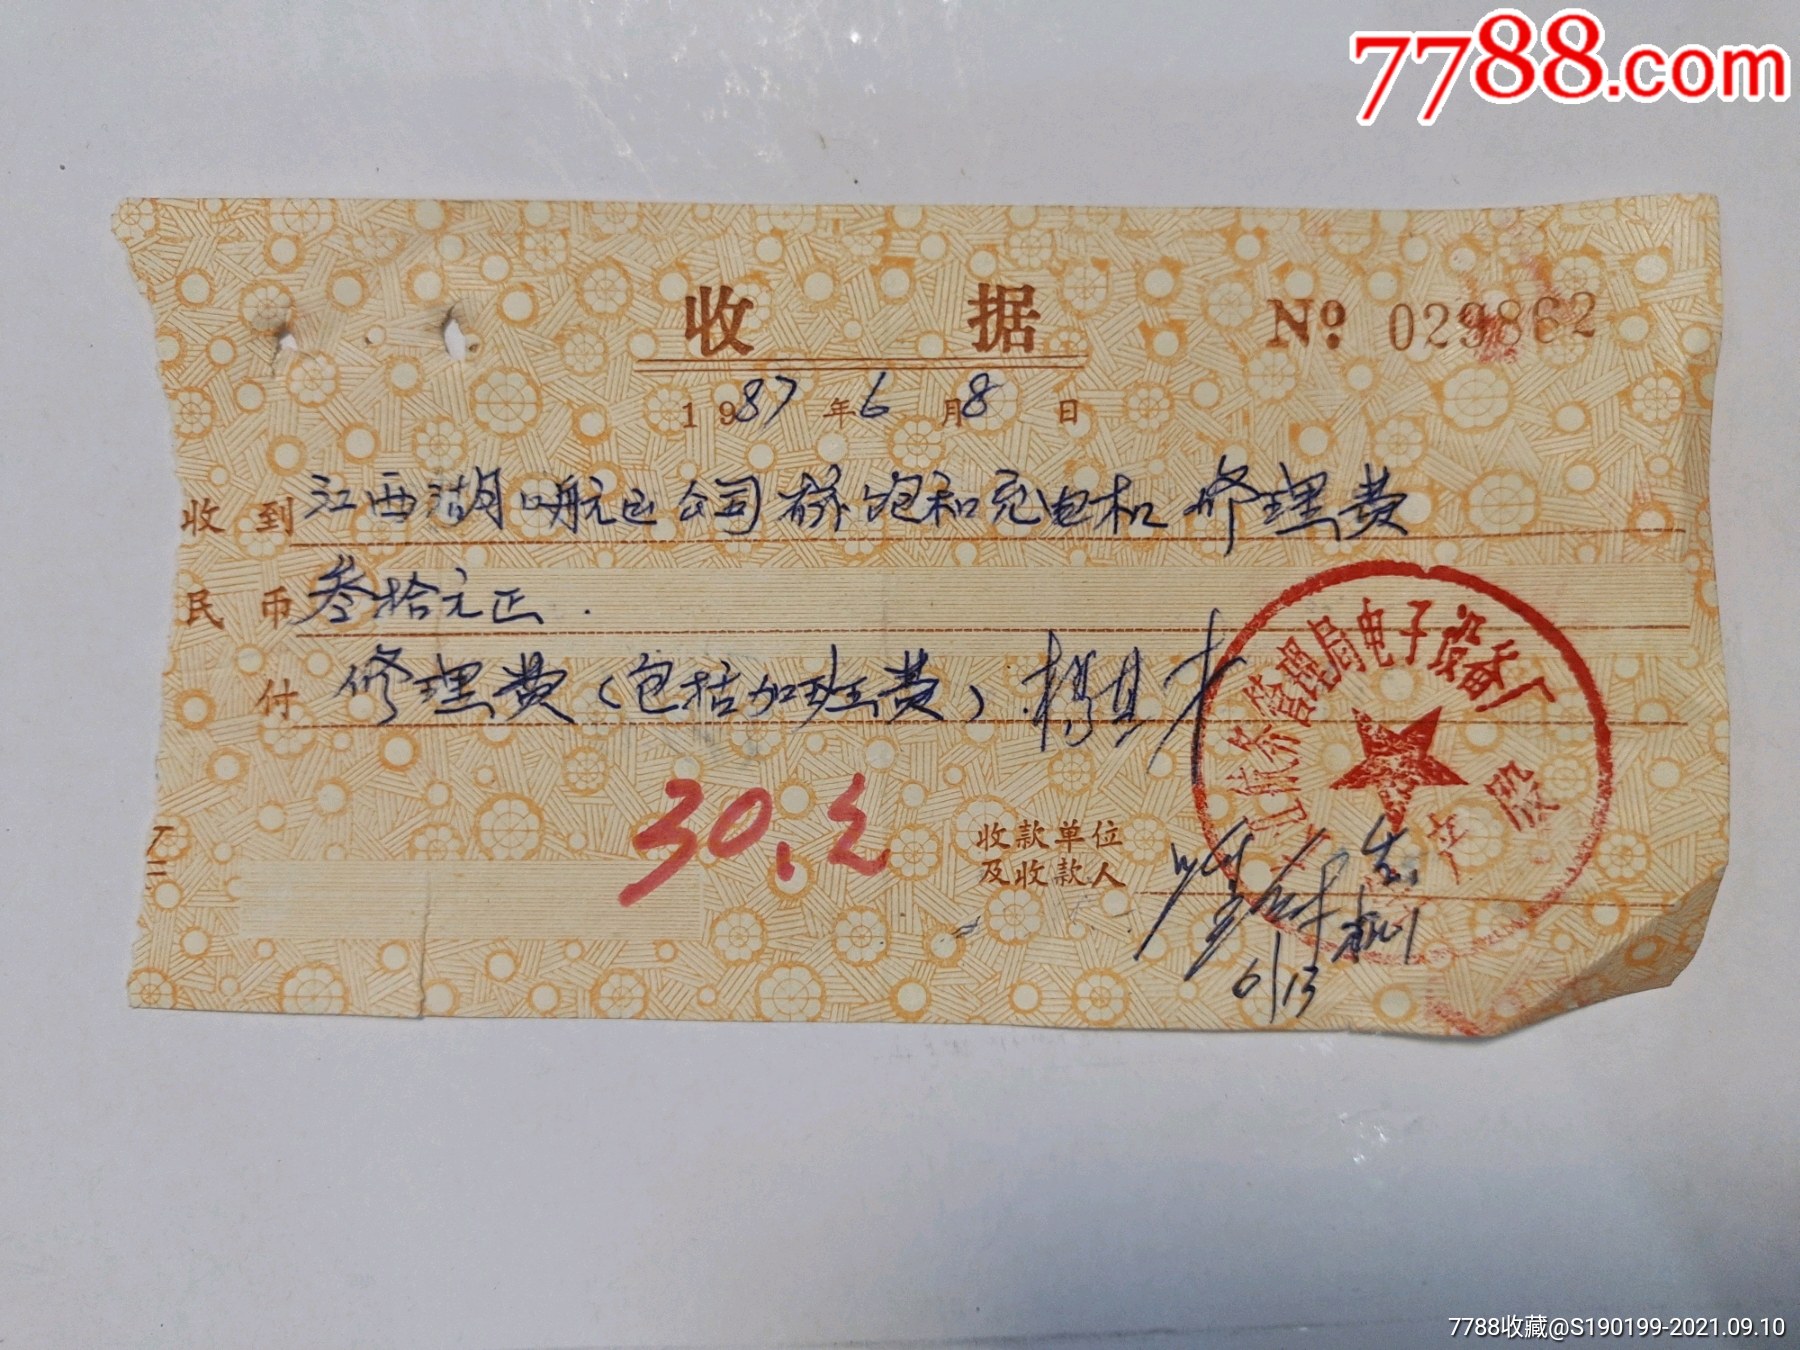 7788.com
收据 № 029862
1987年6月8日
收到江西湖口航运公司 饱和充电机修理费
民币叁拾元正.
付 修理费(包括加班费)
30.元
收款单位
及收款人
航务管理局电子设备厂
产股
6/13
7788收藏@S190199-2021.09.10